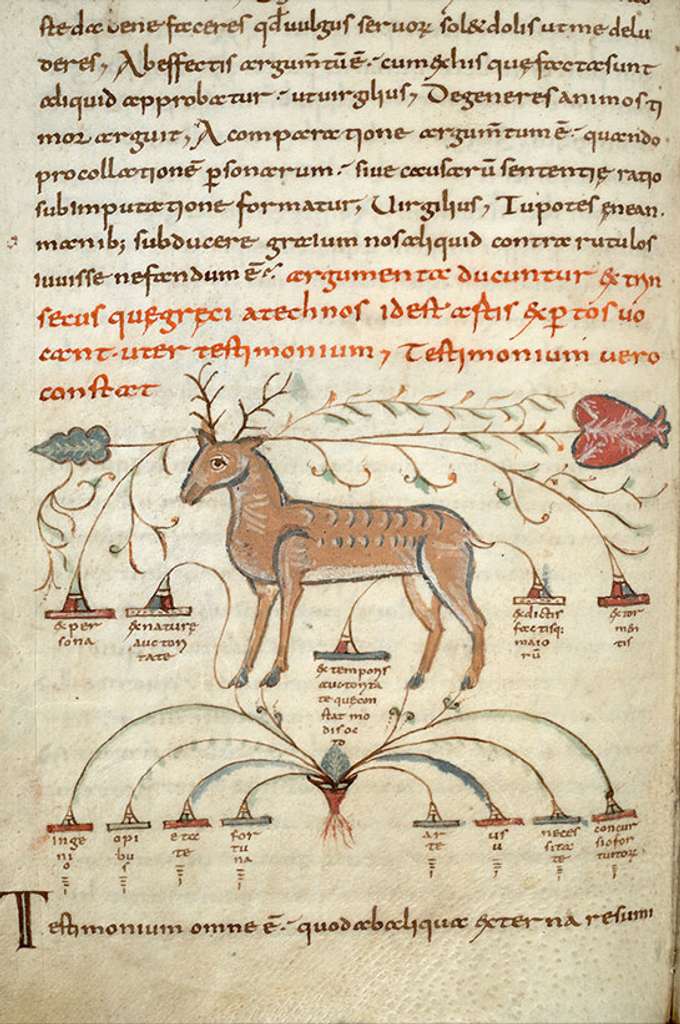 bene faceres qđ uulgus seruorum solet dolis ut me delu
deres, Ab effectis argum̄tū ē · cum ex his que facta sunt
aliquid approbatur · ut uirgilius, Degeneres animos ti
mor arguit, A comparatione argum̄tum ē · quando
pro collatione ꝑsonarum · siue causarū sententię ratio
sub imputatione formatur, Uirgilius, Tu potes ęnean
manib; subducere graium nos aliquid contra rutulos
iuuisse nefandum ē · argumenta ducuntur extrin
secus quę gręci atechnos id est artis expertos uo
cant · uter testimonium, Testimonium uero
constat
ex per
sona
ex naturę
auctori
tate
ex dictis
factisq;
maio
rū
ex tor
men
tis
ex temporis
auctorita
te que con
stat mo
dis oc
to
inge
ni
o
opi
bu
s
eta
te
for
tu
na
ar
te
us
u
neces
sita
te
concur
sio for
tuitorum
Testimonium omne ē · quod ab aliqua externa re sumi